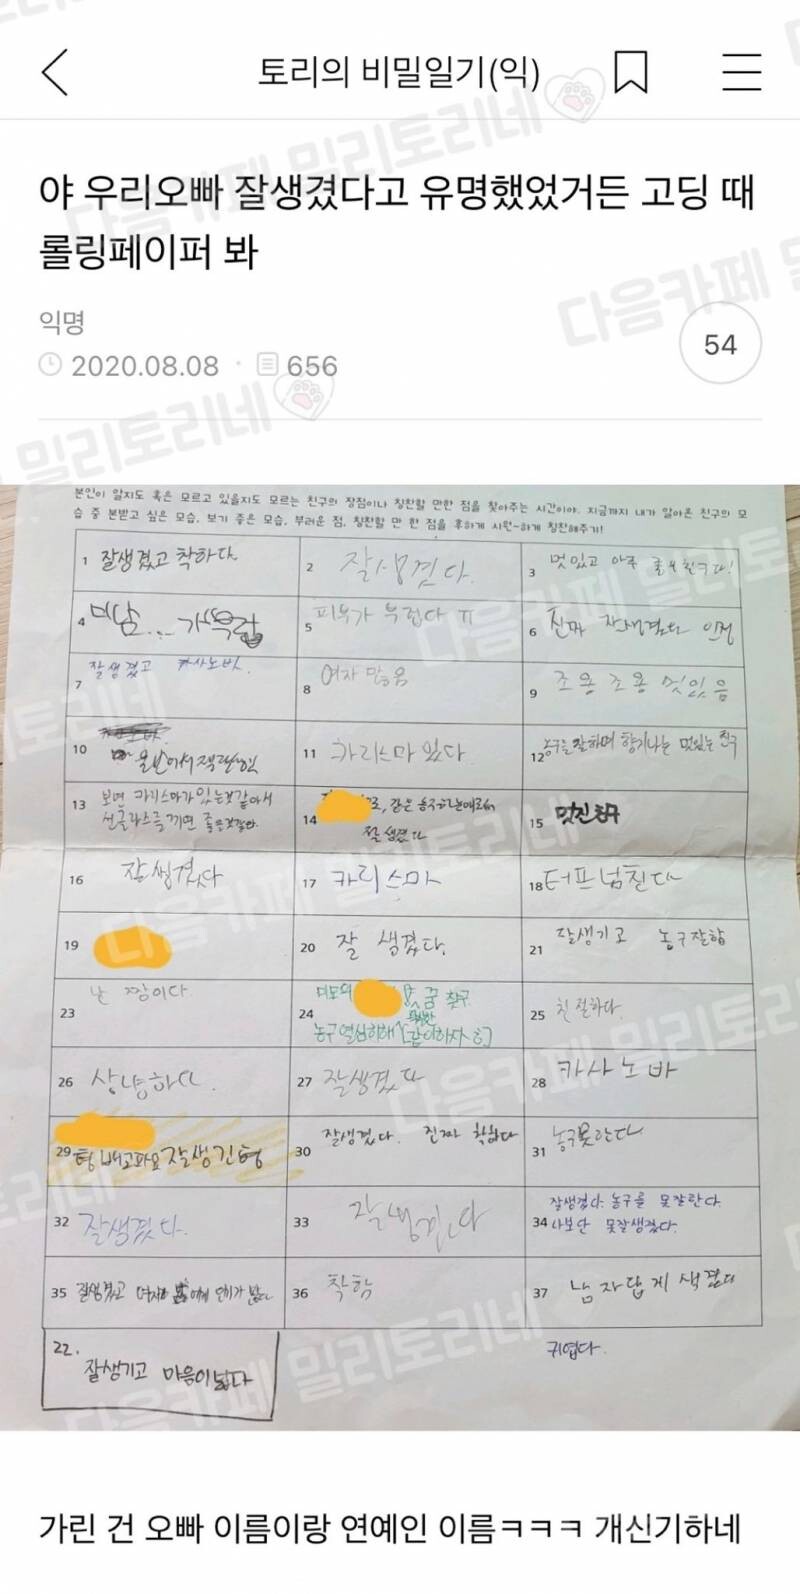 토리의 비밀일기(익)
야 우리오빠 잘생겼다고 유명했었거든 고딩 때
롤링페이퍼 봐
익명
54
2020.08.08 · 656
본인이 알지도 혹은 모르고 있을지도 모르는 친구의 장점이나 칭찬할 만한 점을 찾아주는 시간이야. 지금까지 내가 알아온 친구의 모
습 중 본받고 싶은 모습, 보기 좋은 모습, 부러운 점, 칭찬할 만 한 점을 후하게 시원~하게 칭찬해주기!
1 잘생겼고 착하다
2 잘생겼다.
3 멋있고 아주
4 미남...
5 피부가 부럽다 ㅠ
6 진짜 잘생겼다 인정
7 잘생겼고 카사노바.
8 여자 많음
9 조용조용 멋있음
10
11 카리스마 있다.
12 농구를 잘하며 향기나는 멋있는 친구
13 보면 카리스마가 있는것같아서
선글라스를 끼면 좋은것같아.
14
잘생겼다
15 멋진친구
16 잘생겼다
17 카리스마
18 터프넘친다
19
20 잘 생겼다.
21 잘생기고 농구잘함
23 넌 짱이다
24 미모의
농구열심히해 [같이하자 ㅎ]
25 친절하다.
26 상냥하다.
27 잘생겼다
28 카사노바
29 형 배고파요 잘생긴형
30 잘생겼다. 진짜 착하다
31 농구못한다
32 잘생겼다.
33 잘생겼다
34 잘생겼다. 농구를 못잘한다.
나보단 못잘생겼다.
35 잘생겼고
36 착함
37 남자답게 생겼다
22. 잘생기고 마음이넓다
귀엽다.
가린 건 오빠 이름이랑 연예인 이름ㅋㅋㅋ 개신기하네
다음카페 밀리토리네